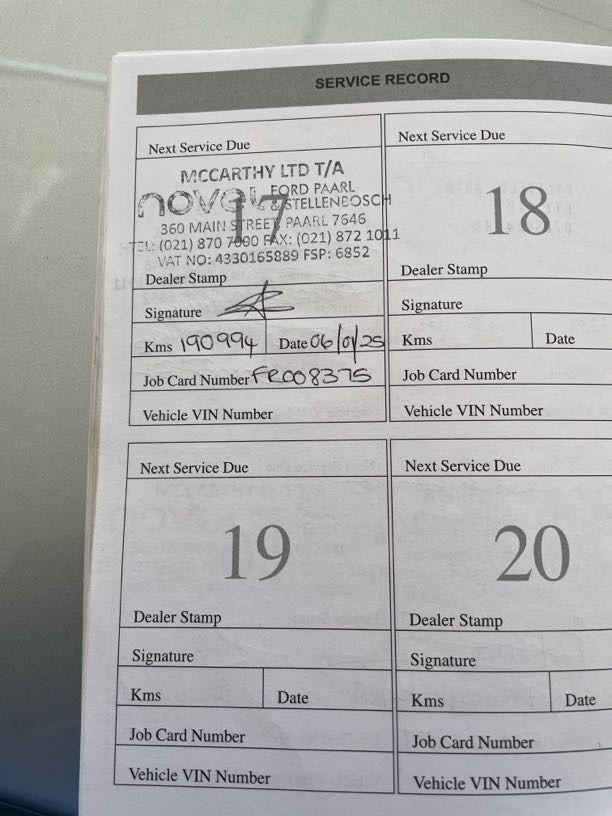 SERVICE RECORD
Next Service Due
MCCARTHY LTD T/A
FORD PAARL
& STELLENBOSCH
17
360 MAIN STREET PAARL 7646
TEL: (021) 870 7000 FAX: (021) 872 1011
VAT NO: 4330165889 FSP: 6852
Dealer Stamp
Signature
Kms 190994 Date 06/01/25
Job Card Number FR008375
Vehicle VIN Number
Next Service Due
18
Dealer Stamp
Signature
Kms Date
Job Card Number
Vehicle VIN Number
Next Service Due
19
Dealer Stamp
Signature
Kms Date
Job Card Number
Vehicle VIN Number
Next Service Due
20
Dealer Stamp
Signature
Kms Date
Job Card Number
Vehicle VIN Number